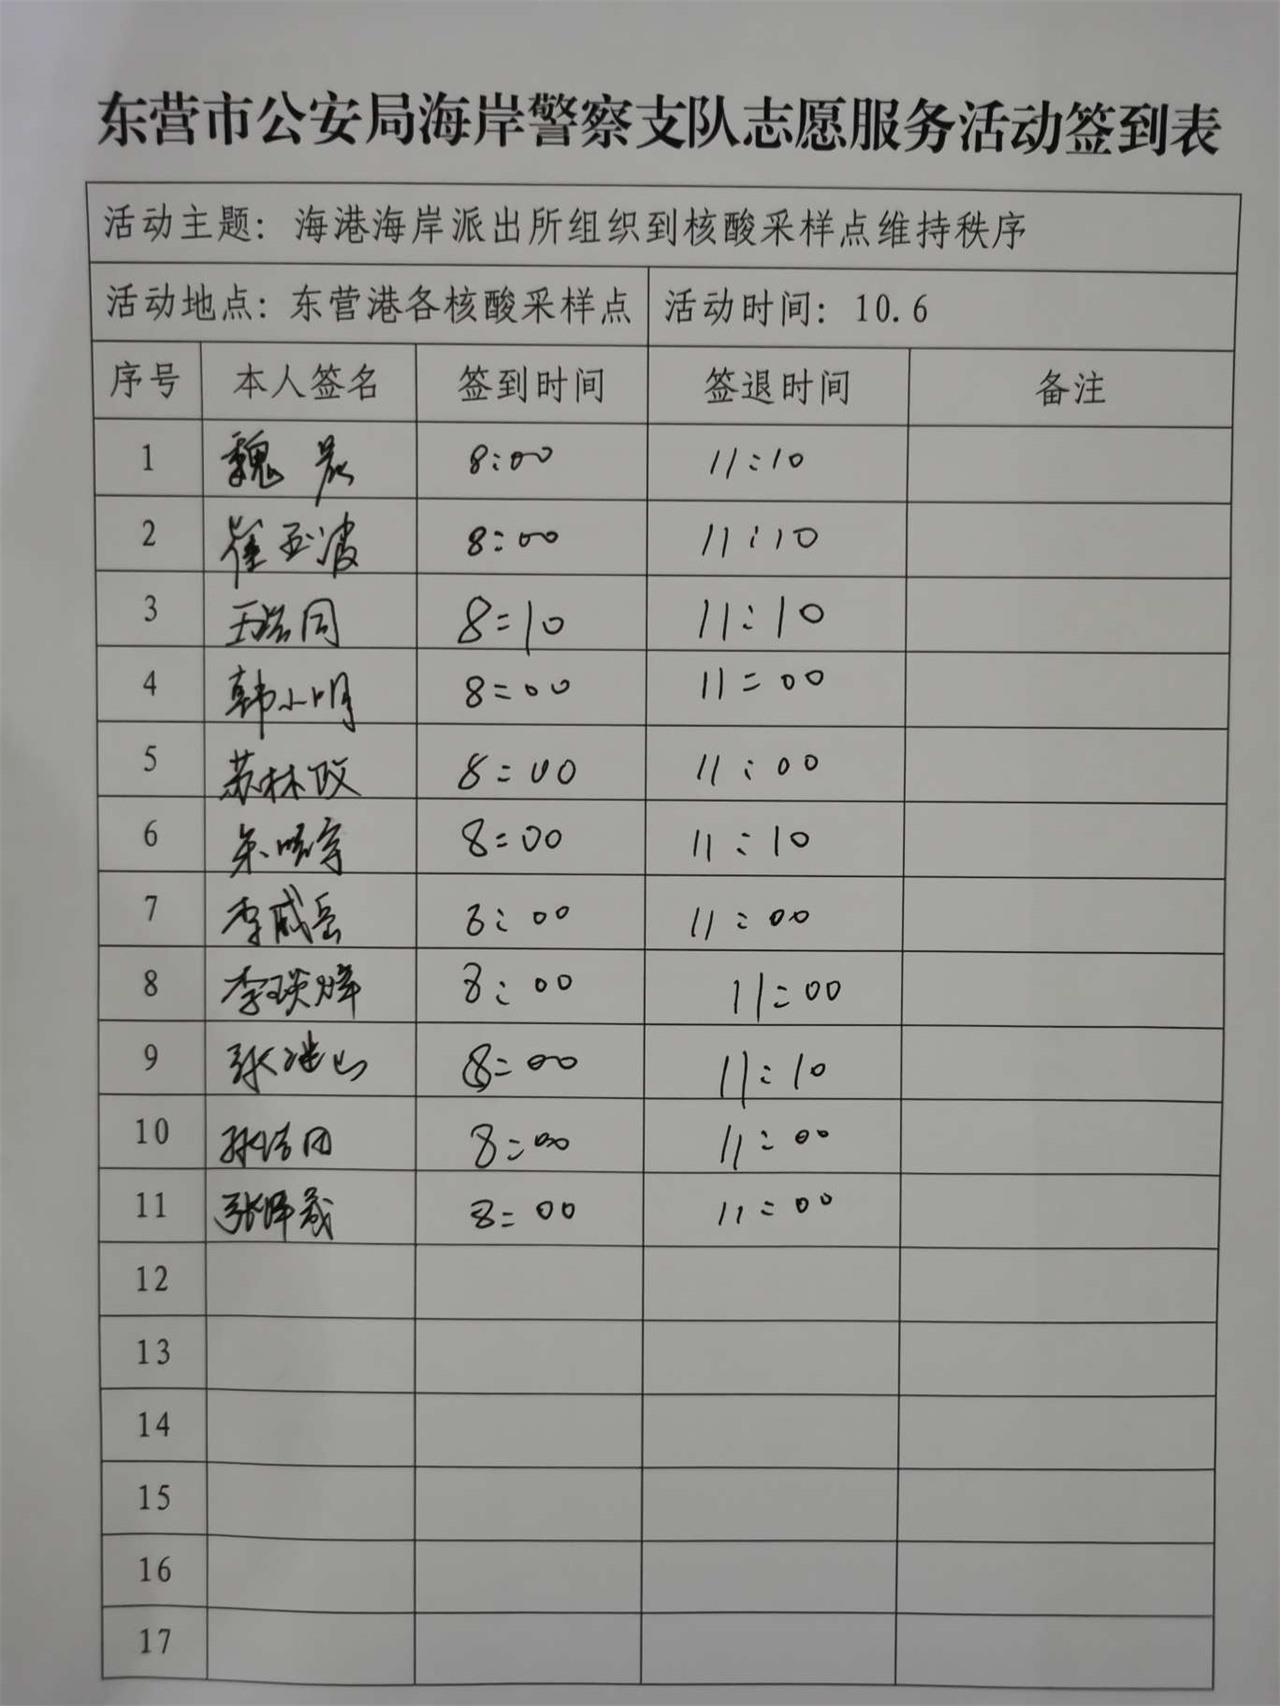 东营市公安局海岸警察支队志愿服务活动签到表
活动主题：海港海岸派出所组织到核酸采样点维持秩序
活动地点：东营港各核酸采样点 活动时间：10.6
序号 本人签名 签到时间 签退时间 备注
1 魏晨 8:00 11:10
2 崔玉波 8:00 11:10
3 8:10 11:10
4 韩小明 8:00 11:00
5 苏林政 8:00 11:00
6 8:00 11:10
7 李威岳 8:00 11:00
8 李琰烽 8:00 11:00
9 8:00 11:10
10 8:00 11:00
11 8:00 11:00
12
13
14
15
16
17